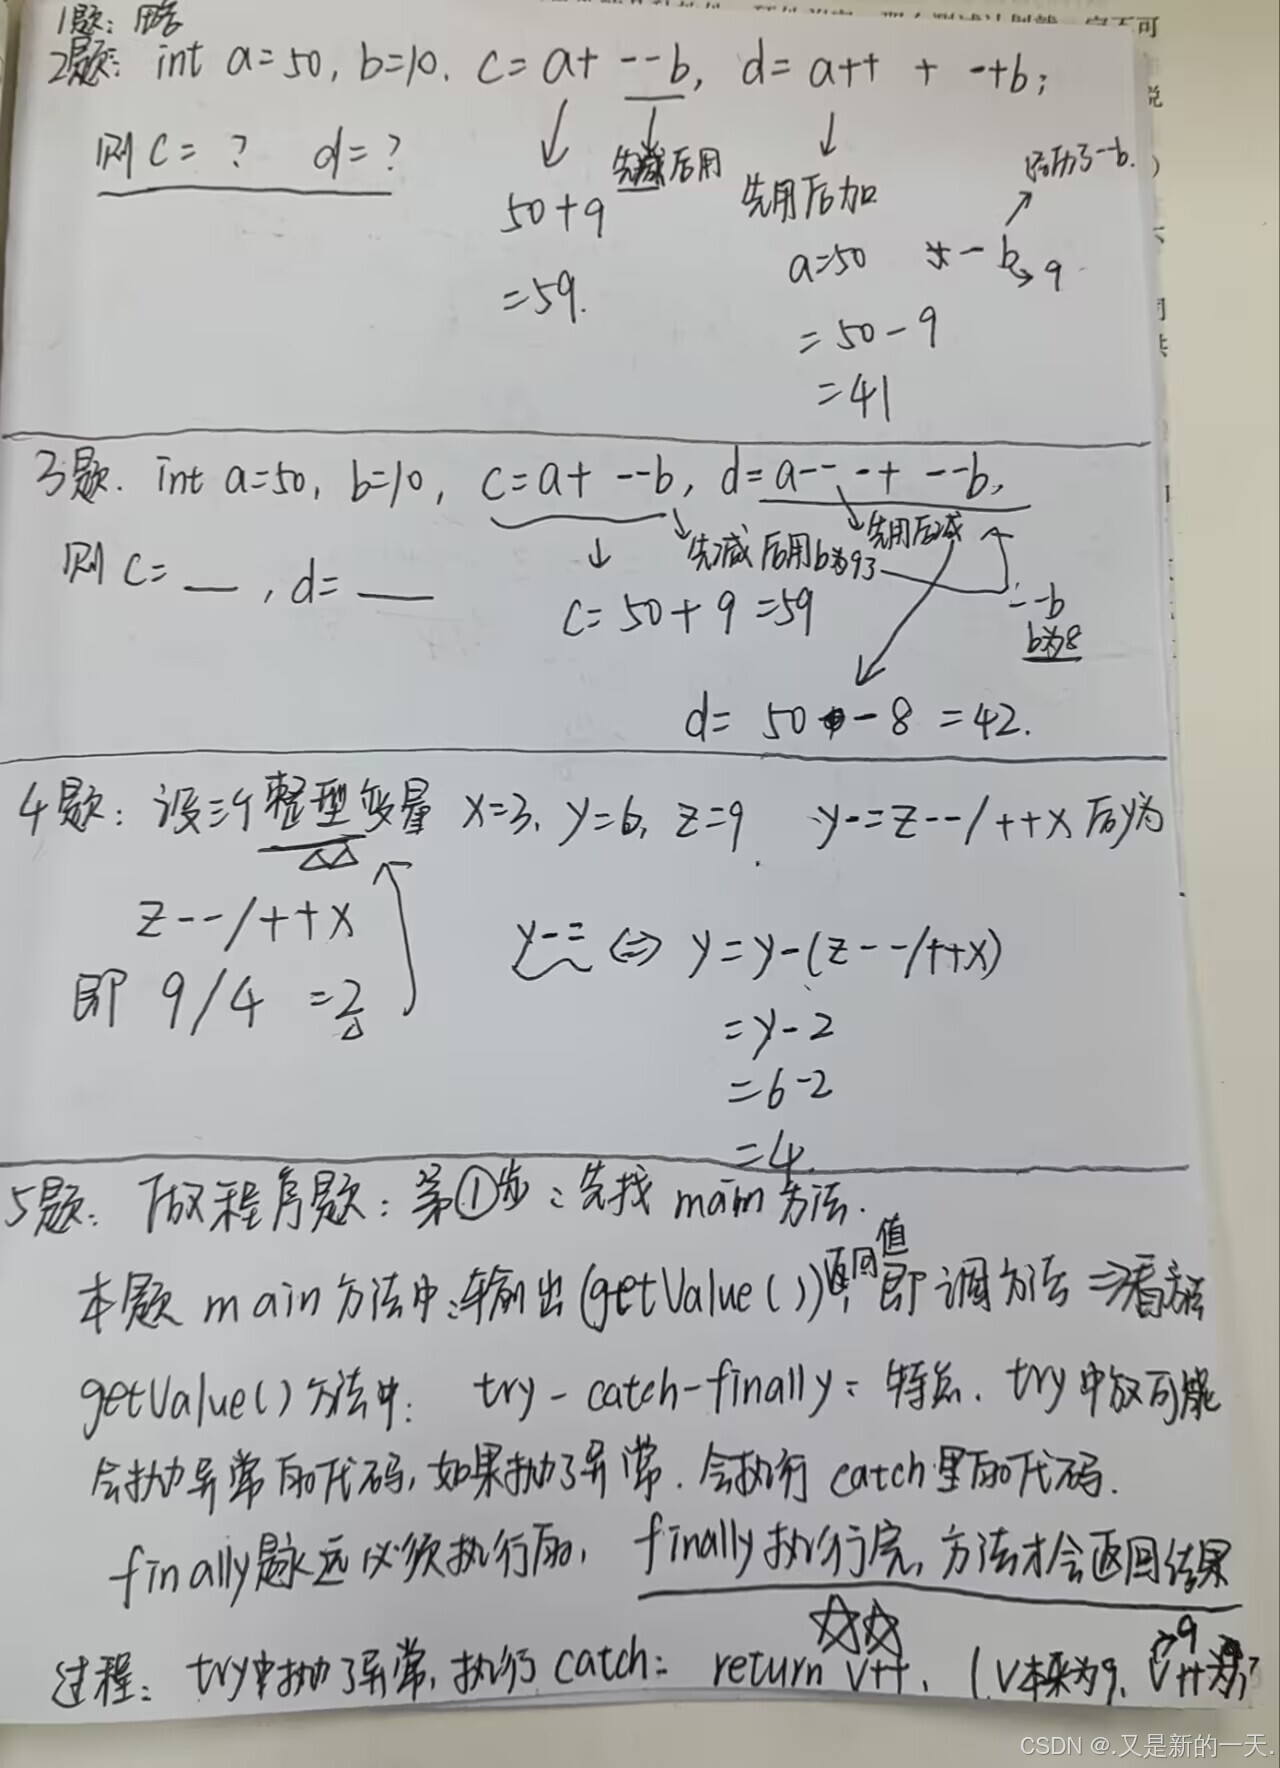 1题: 略
2题: int a=50, b=10. c=a+ --b, d=a++ + -+b;
则 c=? d=?
先减后用
先用后加
50+9
=59.
a=50
- b
9
=50-9
=41
3题. int a=50, b=10, c=a+ --b, d=a-- -+ --b,
则 c=__, d=__
先减后用b为9
先用后减
c=50+9=59
--b
b为8
d= 50 -8 =42.
4题: 设三个整型变量 x=3, y=6, z=9. y-=z--/++x 后y为
z--/++x
即 9/4 =2
y-= ⇔ y=y-(z--/++x)
=y-2
=6-2
=4.
5题. 做程序题: 第①步: 先找 main 方法.
本题 main 方法中: 输出(getValue())返回值, 即调方法 ⇒看方法
getValue()方法中: try-catch-finally: 特点. try中放可能
会抛异常的代码, 如果抛了异常. 会执行 catch里的代码.
finally是永远必须执行的, finally执行完, 方法才会返回结果
☆☆
过程: try中抛了异常, 执行 catch: return v++. (v本来为9, v++为
9
CSDN @.又是新的一天.